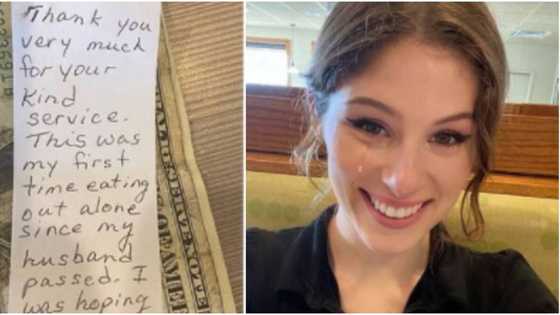 Thank you
very much
for your
kind
service.
This was
my first
time eating
out alone
since my
husband
passed. I
was hoping